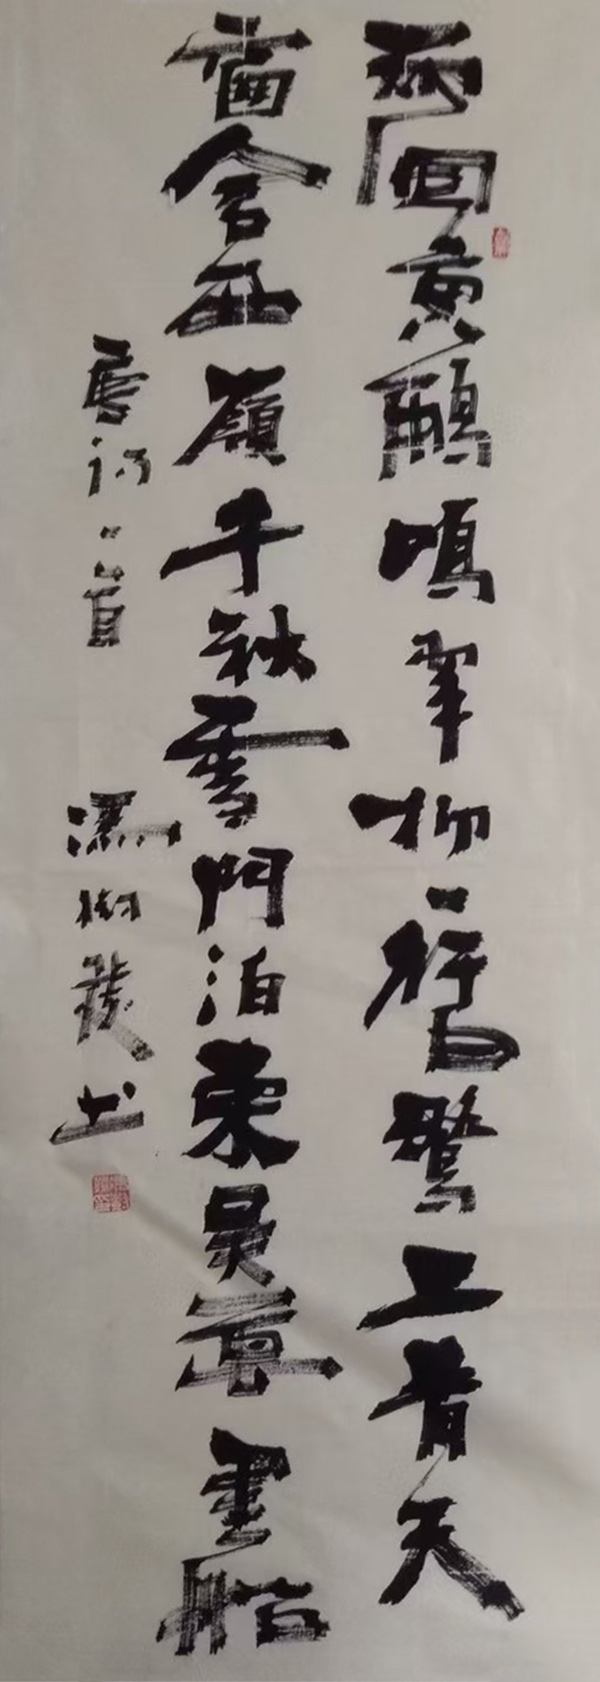 两個黄鸝鳴翠柳一行白鷺上青天
窗含西嶺千秋雪門泊東吳萬里船
唐诗一首 馮树书